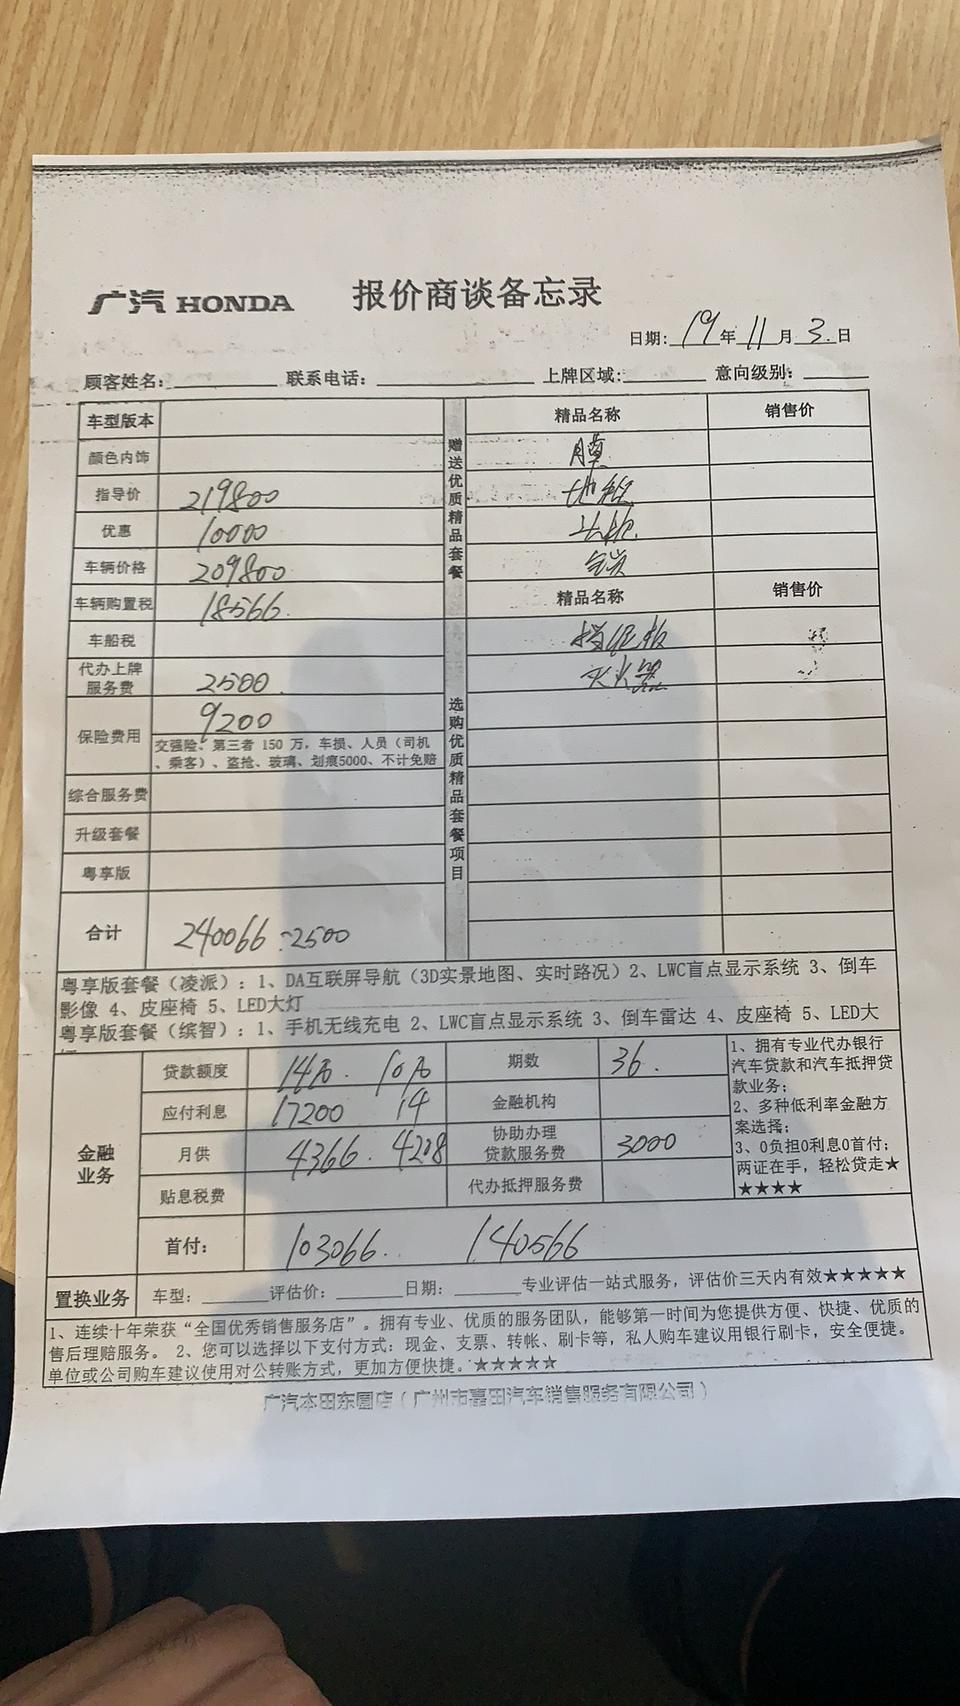 广汽 HONDA 报价商谈备忘录
日期: 19 年 11 月 3 日
顾客姓名: 联系电话: 上牌区域: 意向级别:
车型版本
颜色内饰
指导价 219800
优惠 10000
车辆价格 209800
车辆购置税 18566
车船税
代办上牌服务费 2500
保险费用 9200
交强险、第三者 150 万, 车损、人员(司机
、乘客)、盗抢、玻璃、划痕5000、不计免赔
综合服务费
升级套餐
粤享版
合计 240066 -2500
赠送优质精品套餐
精品名称 销售价
膜
地毯
全点
选购优质精品套餐项目
精品名称 销售价
挡泥板
灭火器
粤享版套餐(凌派): 1、DA互联屏导航(3D实景地图、实时路况)2、LWC盲点显示系统 3、倒车
影像 4、皮座椅 5、LED大灯
粤享版套餐(缤智): 1、手机无线充电 2、LWC盲点显示系统 3、倒车雷达 4、皮座椅 5、LED大
金融业务
贷款额度 14万. 10万 期数 36.
应付利息 17200 14 金融机构
月供 4366. 4208 协助办理贷款服务费 3000
贴息税费 代办抵押服务费
首付: 103066. 140566
1、拥有专业代办银行
汽车贷款和汽车抵押贷
款业务;
2、多种低利率金融方
案选择;
3、0负担0利息0首付;
两证在手, 轻松贷走★
★★★★
置换业务 车型: 评估价: 日期: 专业评估一站式服务, 评估价三天内有效★★★★★
1、连续十年荣获“全国优秀销售服务店”。拥有专业、优质的服务团队, 能够第一时间为您提供方便、快捷、优质的
售后理赔服务。 2、您可以选择以下支付方式: 现金、支票、转帐、刷卡等, 私人购车建议用银行刷卡, 安全便捷。
单位或公司购车建议使用对公转账方式, 更加方便快捷。★★★★★
广汽本田东圃店(广州市嘉田汽车销售服务有限公司)